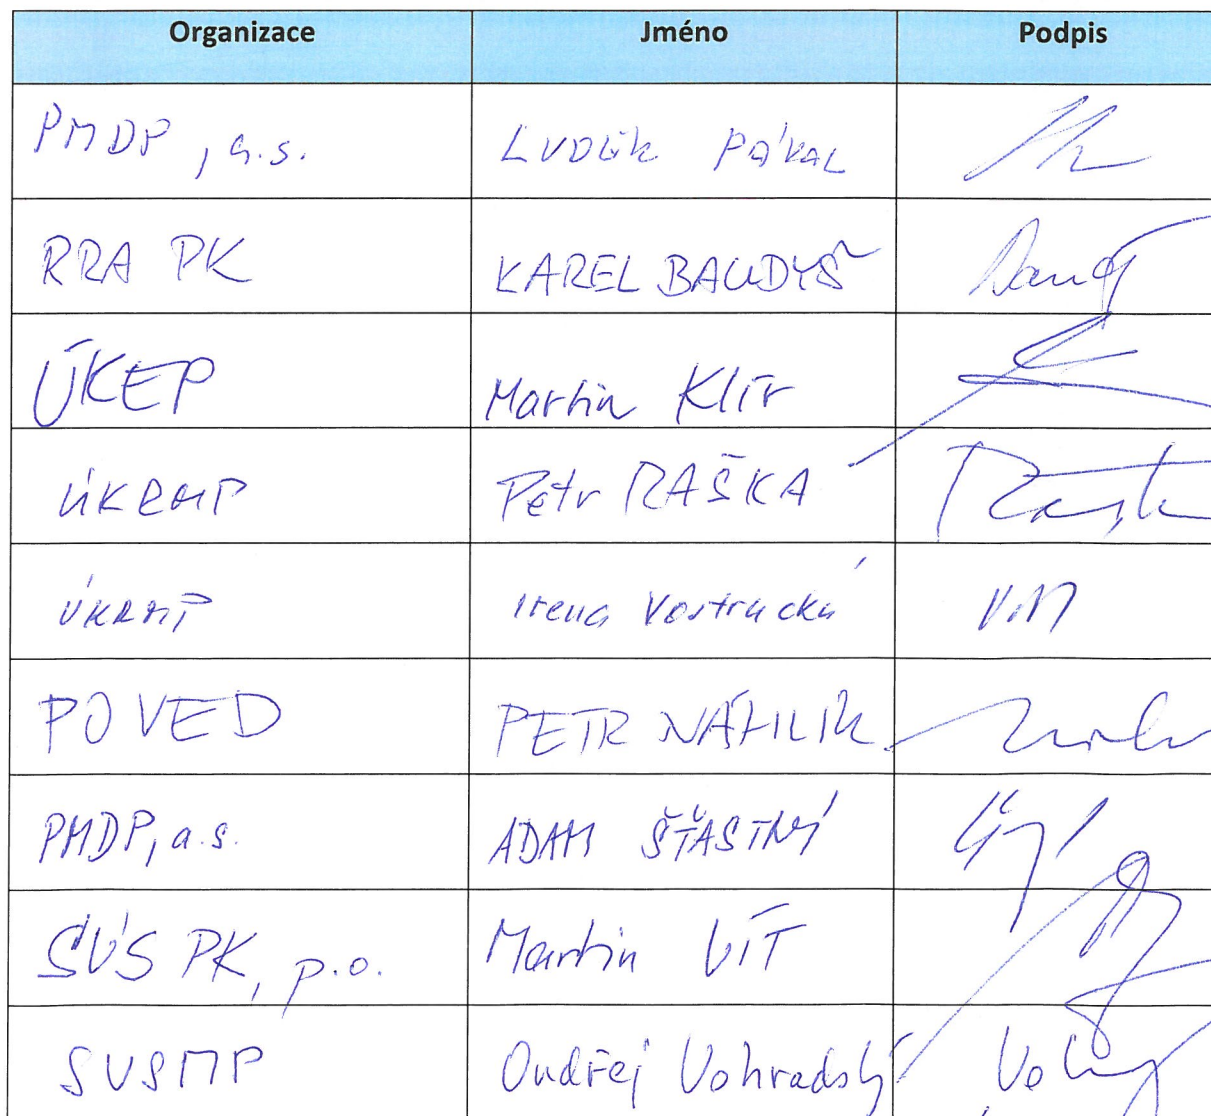 Organizace Jméno Podpis
PMDP, a.s. LUDĚK PÁKAL
RRA PK KAREL BAUDYŠ
ÚKEP Martin Klír
ÚKRMP Petr RAŠKA
ÚKRMP Irena Vostracká
POVED PETR NÁHLÍK
PMDP, a.s. ADAM ŠŤASTNÝ
SÚS PK, p.o. Martin VÍT
SVSMP Ondřej Vohradský